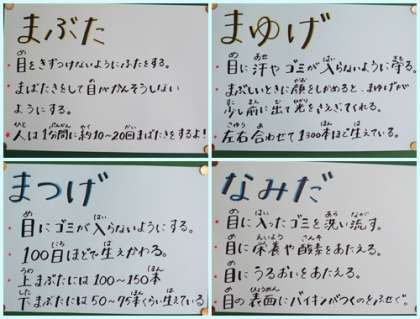 まぶた
目をきずつけないようにふたをする。
まばたきをして目がかんそうしない
ようにする。
人は1分間に約10~20回まばたきをするよ!
まゆげ
目に汗やゴミが入らないように守る。
まぶしいときに顔をしかめると、まゆげが
少し前に出て光をさえぎてくれる。
左右合わせて1300本ほど生えている。
まつげ
目にゴミが入らないようにする。
100日ほどで生えかわる。
上まぶたには100~150本
下まぶたには50~75本くらい生えている
なみだ
目に入ったゴミを洗い流す。
目に栄養や酸素をあたえる。
目にうるおいをあたえる。
目の表面にバイキンがつくのをふせぐ。